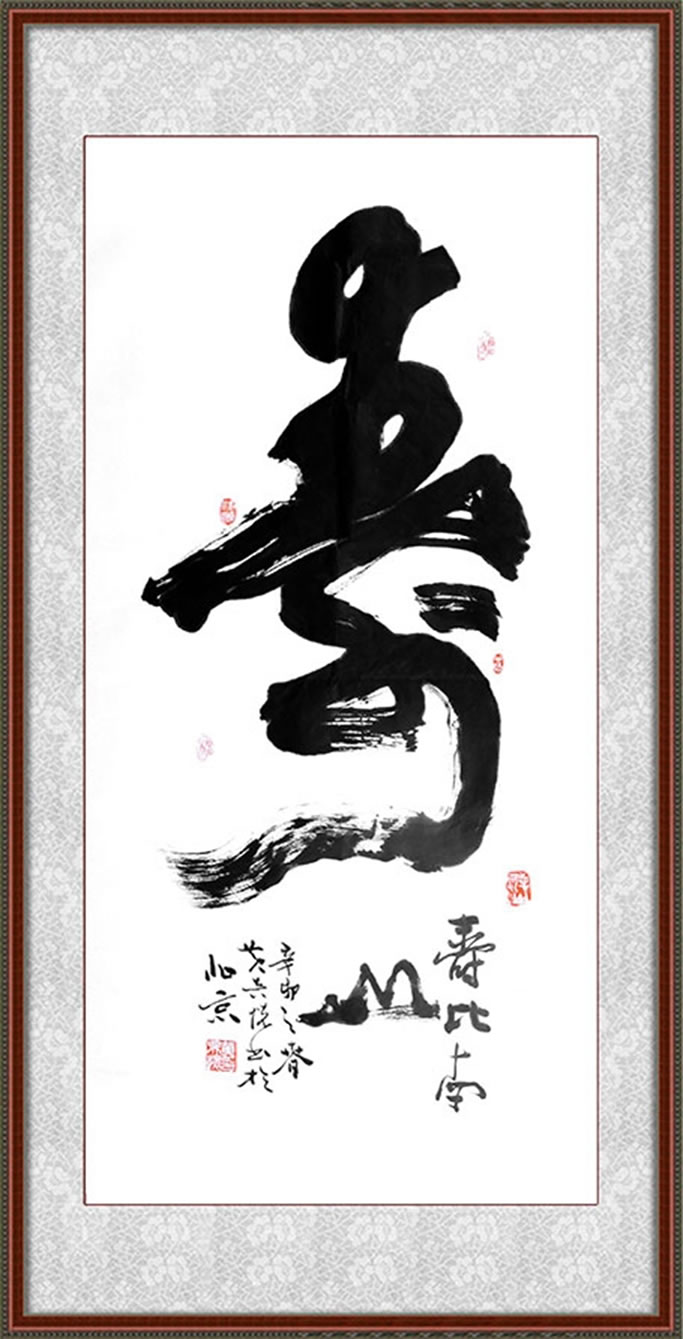 寿
壽比南
山
辛卯之春
书於
北京